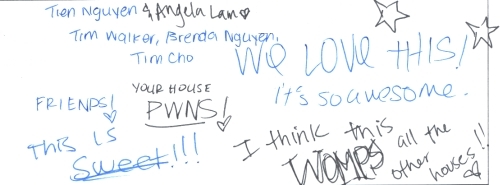 Tien Nguyen & Angela Lam
Tim Walker, Brenda Nguyen,
Tim Cho
WE LOVE THIS!
it's so awesome.
FRIENDS!
THIS IS
Sweet!!!
YOUR HOUSE
PWNS!
I think this
WOMPS all the
other houses!!